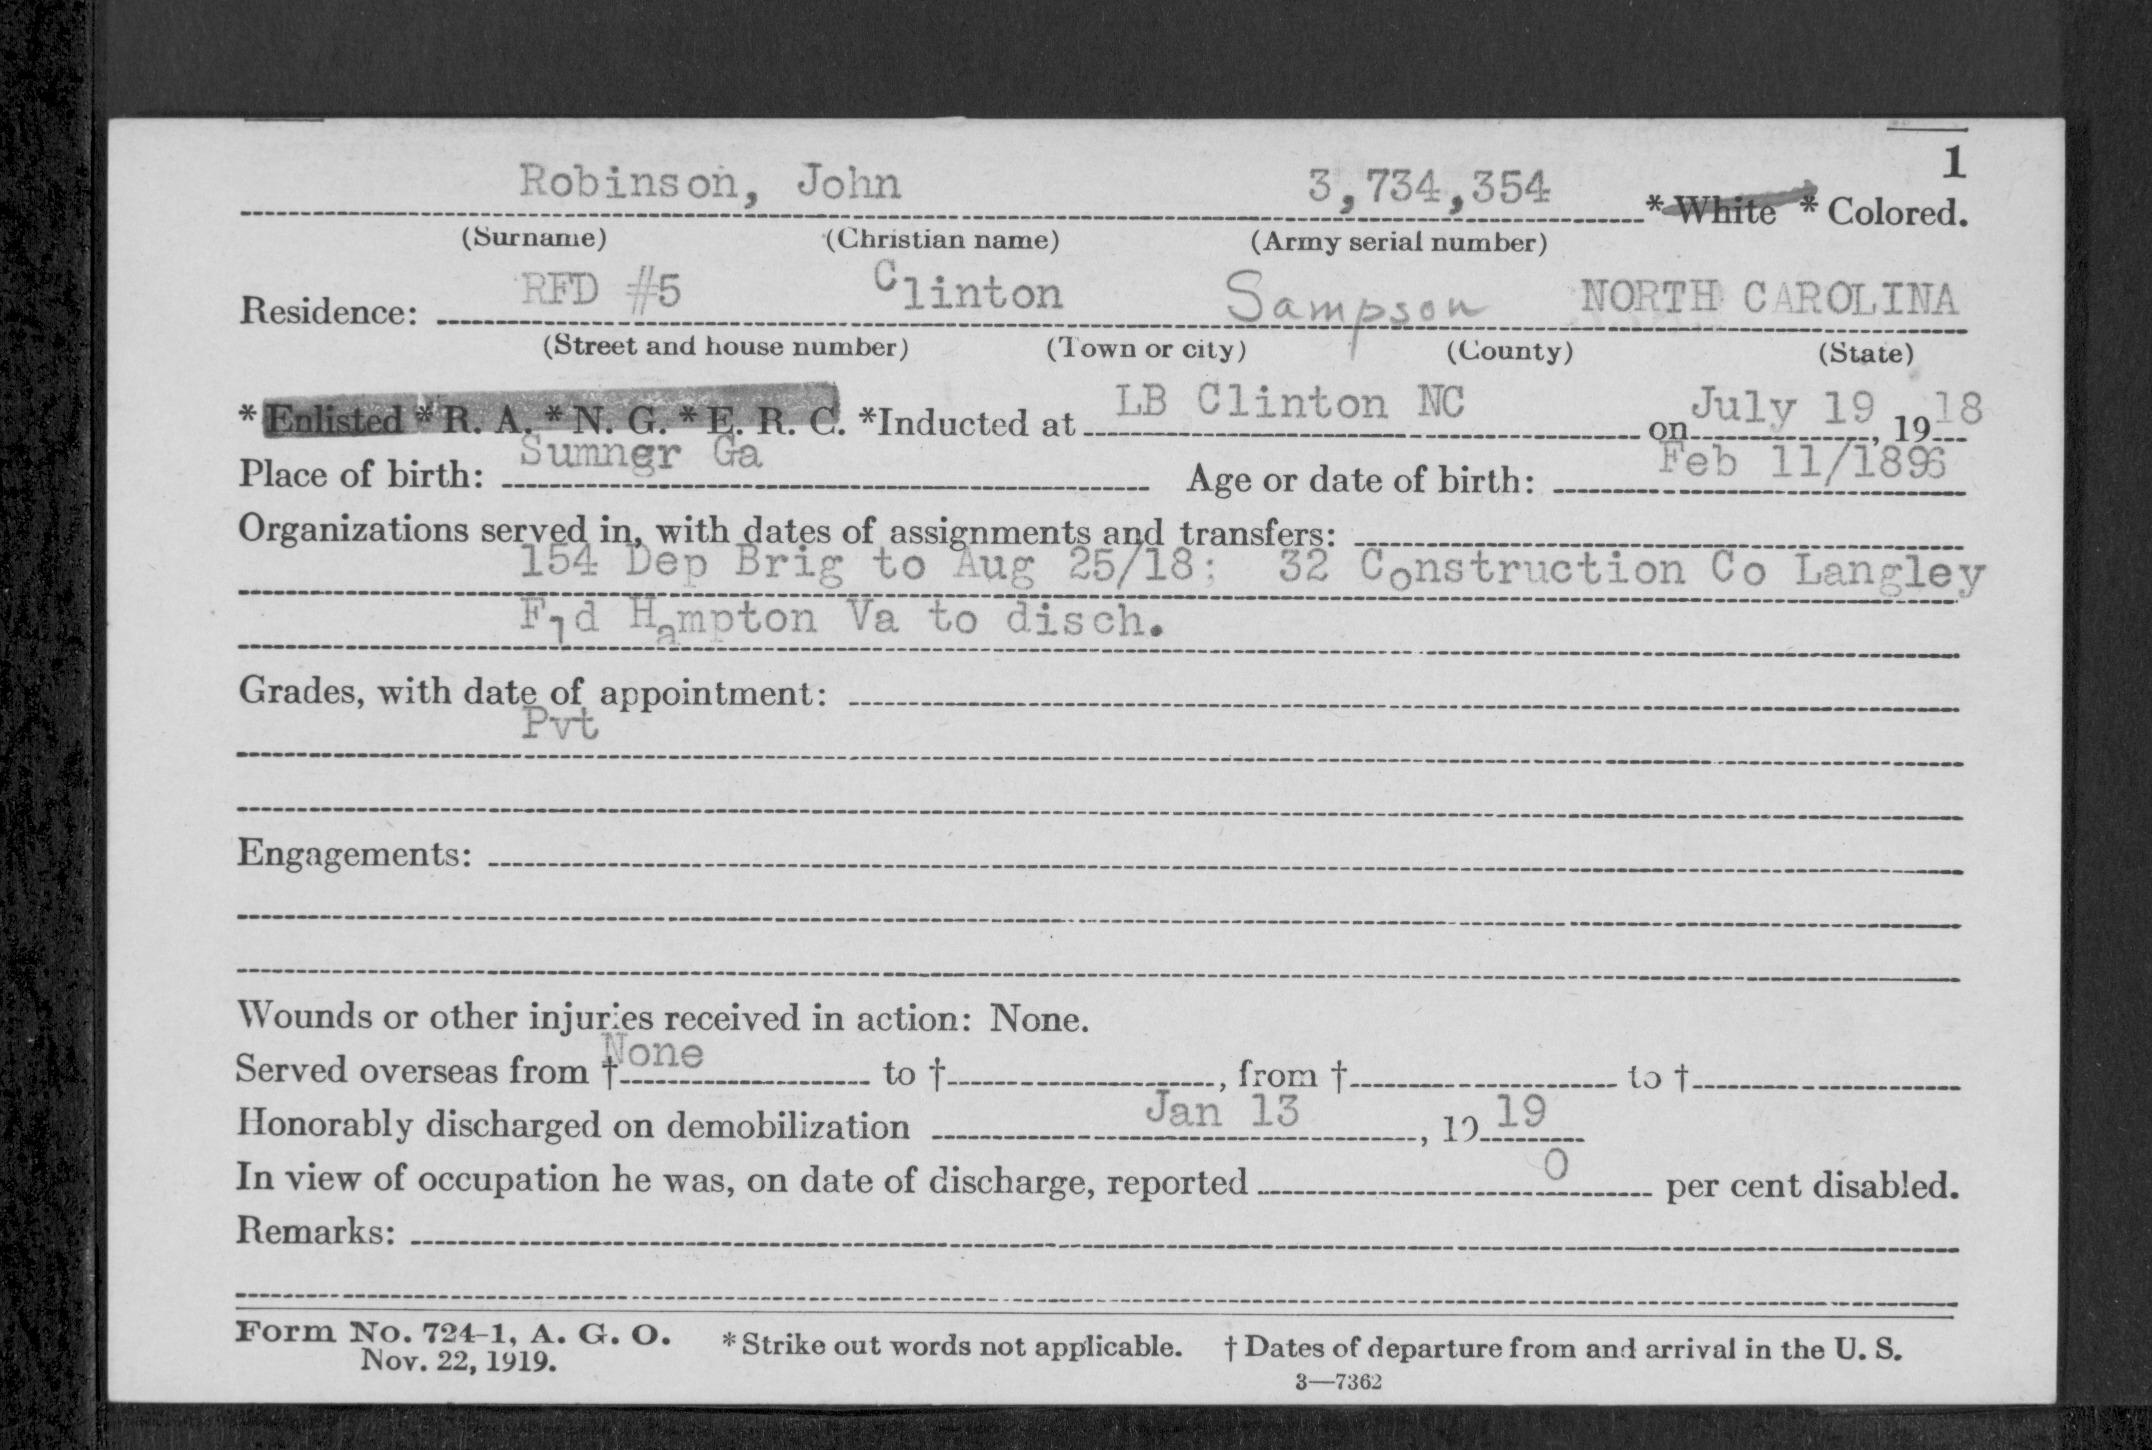 1
Robinson, John 3,734,354 *White *Colored.
(Surname) (Christian name) (Army serial number)
Residence: RFD #5 Clinton Sampson NORTH CAROLINA
(Street and house number) (Town or city) (County) (State)
*Enlisted *R. A. *N. G. *E. R. C. *Inducted at LB Clinton NC on July 19, 1918
Place of birth: Sumner Ga Age or date of birth: Feb 11/1896
Organizations served in, with dates of assignments and transfers:
154 Dep Brig to Aug 25/18; 32 Construction Co Langley
Fld Hampton Va to disch.
Grades, with date of appointment:
Pvt
Engagements:
Wounds or other injuries received in action: None.
Served overseas from † None to †, from † to †
Honorably discharged on demobilization Jan 13, 19 19
In view of occupation he was, on date of discharge, reported 0 per cent disabled.
Remarks:
Form No. 724-1, A. G. O. *Strike out words not applicable. † Dates of departure from and arrival in the U. S.
Nov. 22, 1919.
3—7362